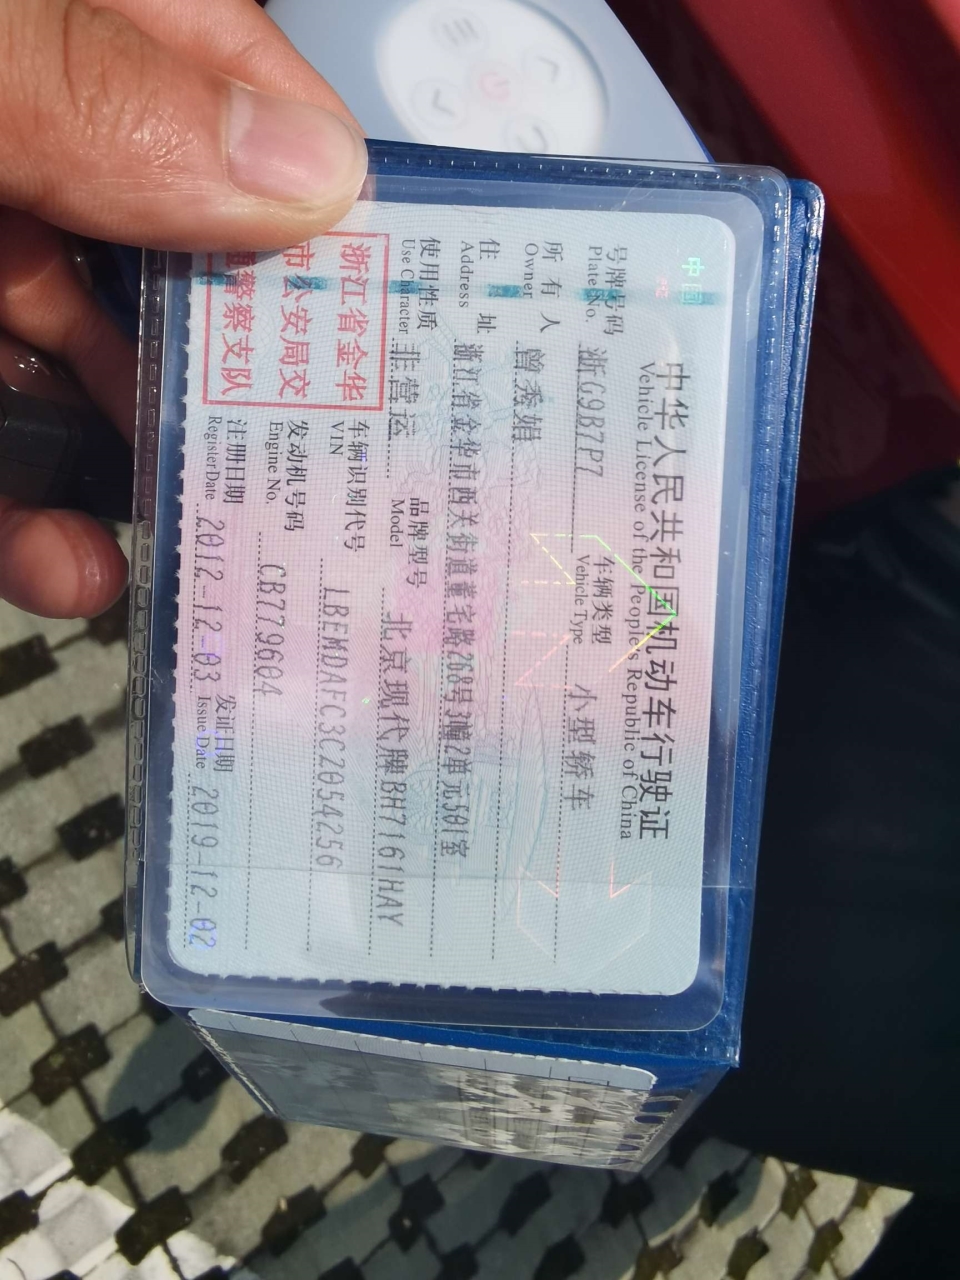 中国
中华人民共和国机动车行驶证
Vehicle License of the People's Republic of China
号牌号码 浙G9B7P7 车辆类型 小型轿车
Plate No. Vehicle Type
所有人 曾秀娟
Owner
住址 浙江省金华市西关街道董宅路268号3幢2单元501室
Address
使用性质 非营运 品牌型号 北京现代牌BH7161HAY
Use Character Model
浙江省金华
市公安局交
警察支队
车辆识别代号 LBEMDAFC3CZ054256
VIN
发动机号码 CB779604
Engine No.
注册日期 2012-12-03 发证日期 2019-12-02
Register Date Issue Date